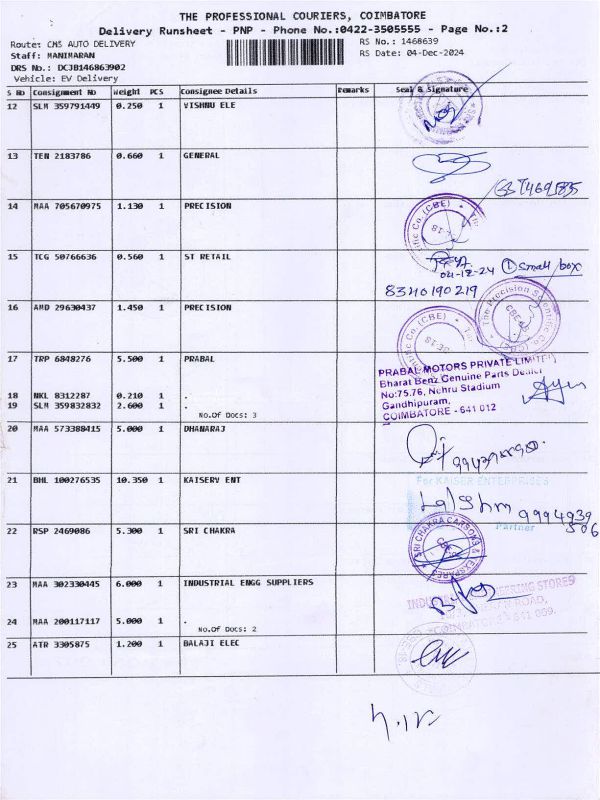 THE PROFESSIONAL COURIERS, COIMBATORE
Delivery Runsheet - PNP - Phone No.:0422-3505555 - Page No.:2
Route: CMS AUTO DELIVERY
RS No.: 1468639
Staff: MANIMARAN
RS Date: 04-Dec-2024
DRS No.: DCJB146863902
Vehicle: EV Delivery
S No Consignment No Weight PCS Consignee Details Remarks Seal & Signature
12 SLM 359791449 0.250 1 VISHNU ELE
13 TEN 2183786 0.660 1 GENERAL
14 MAA 705670975 1.130 1 PRECISION
(CBE)
15 TCG 50766636 0.560 1 ST RETAIL
04-12-24 1 small box
8340190219
16 AMD 29630437 1.450 1 PRECISION
The Precision Scientific Co. (CBE)
17 TRP 6848276 5.500 1 PRABAL
PRABAL MOTORS PRIVATE LIMITED
Bharat Benz Genuine Parts Dealer
No:75,76, Nehru Stadium
Gandhipuram,
COIMBATORE - 641 012
18 NKL 8312287 0.210 1 .
19 SLM 359832832 2.600 1 .
No.Of Docs: 3
20 MAA 573388415 5.000 1 DHANARAJ
21 BHL 100276535 10.350 1 KAISERV ENT
For KAISER ENTERPRISES
9994939
506
Partner
22 RSP 2469086 5.300 1 SRI CHAKRA
SRI CHAKRA CARBONS &
23 MAA 302330445 6.000 1 INDUSTRIAL ENGG SUPPLIERS
24 MAA 200117117 5.000 1 .
No.Of Docs: 2
25 ATR 3305875 1.200 1 BALAJI ELEC